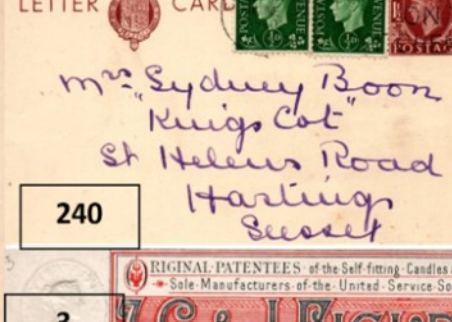 LETTER CARD
REVENUE
½D
½D
ON
POSTAG
Mrs Sydney Boon
"Kings Cot"
St Helens Road
Hastings
Sussex
240
RIGINAL·PATENTEES·of·the·Self-fitting·Candles
Sole·Manufacturers·of·the·United·Service·So
3